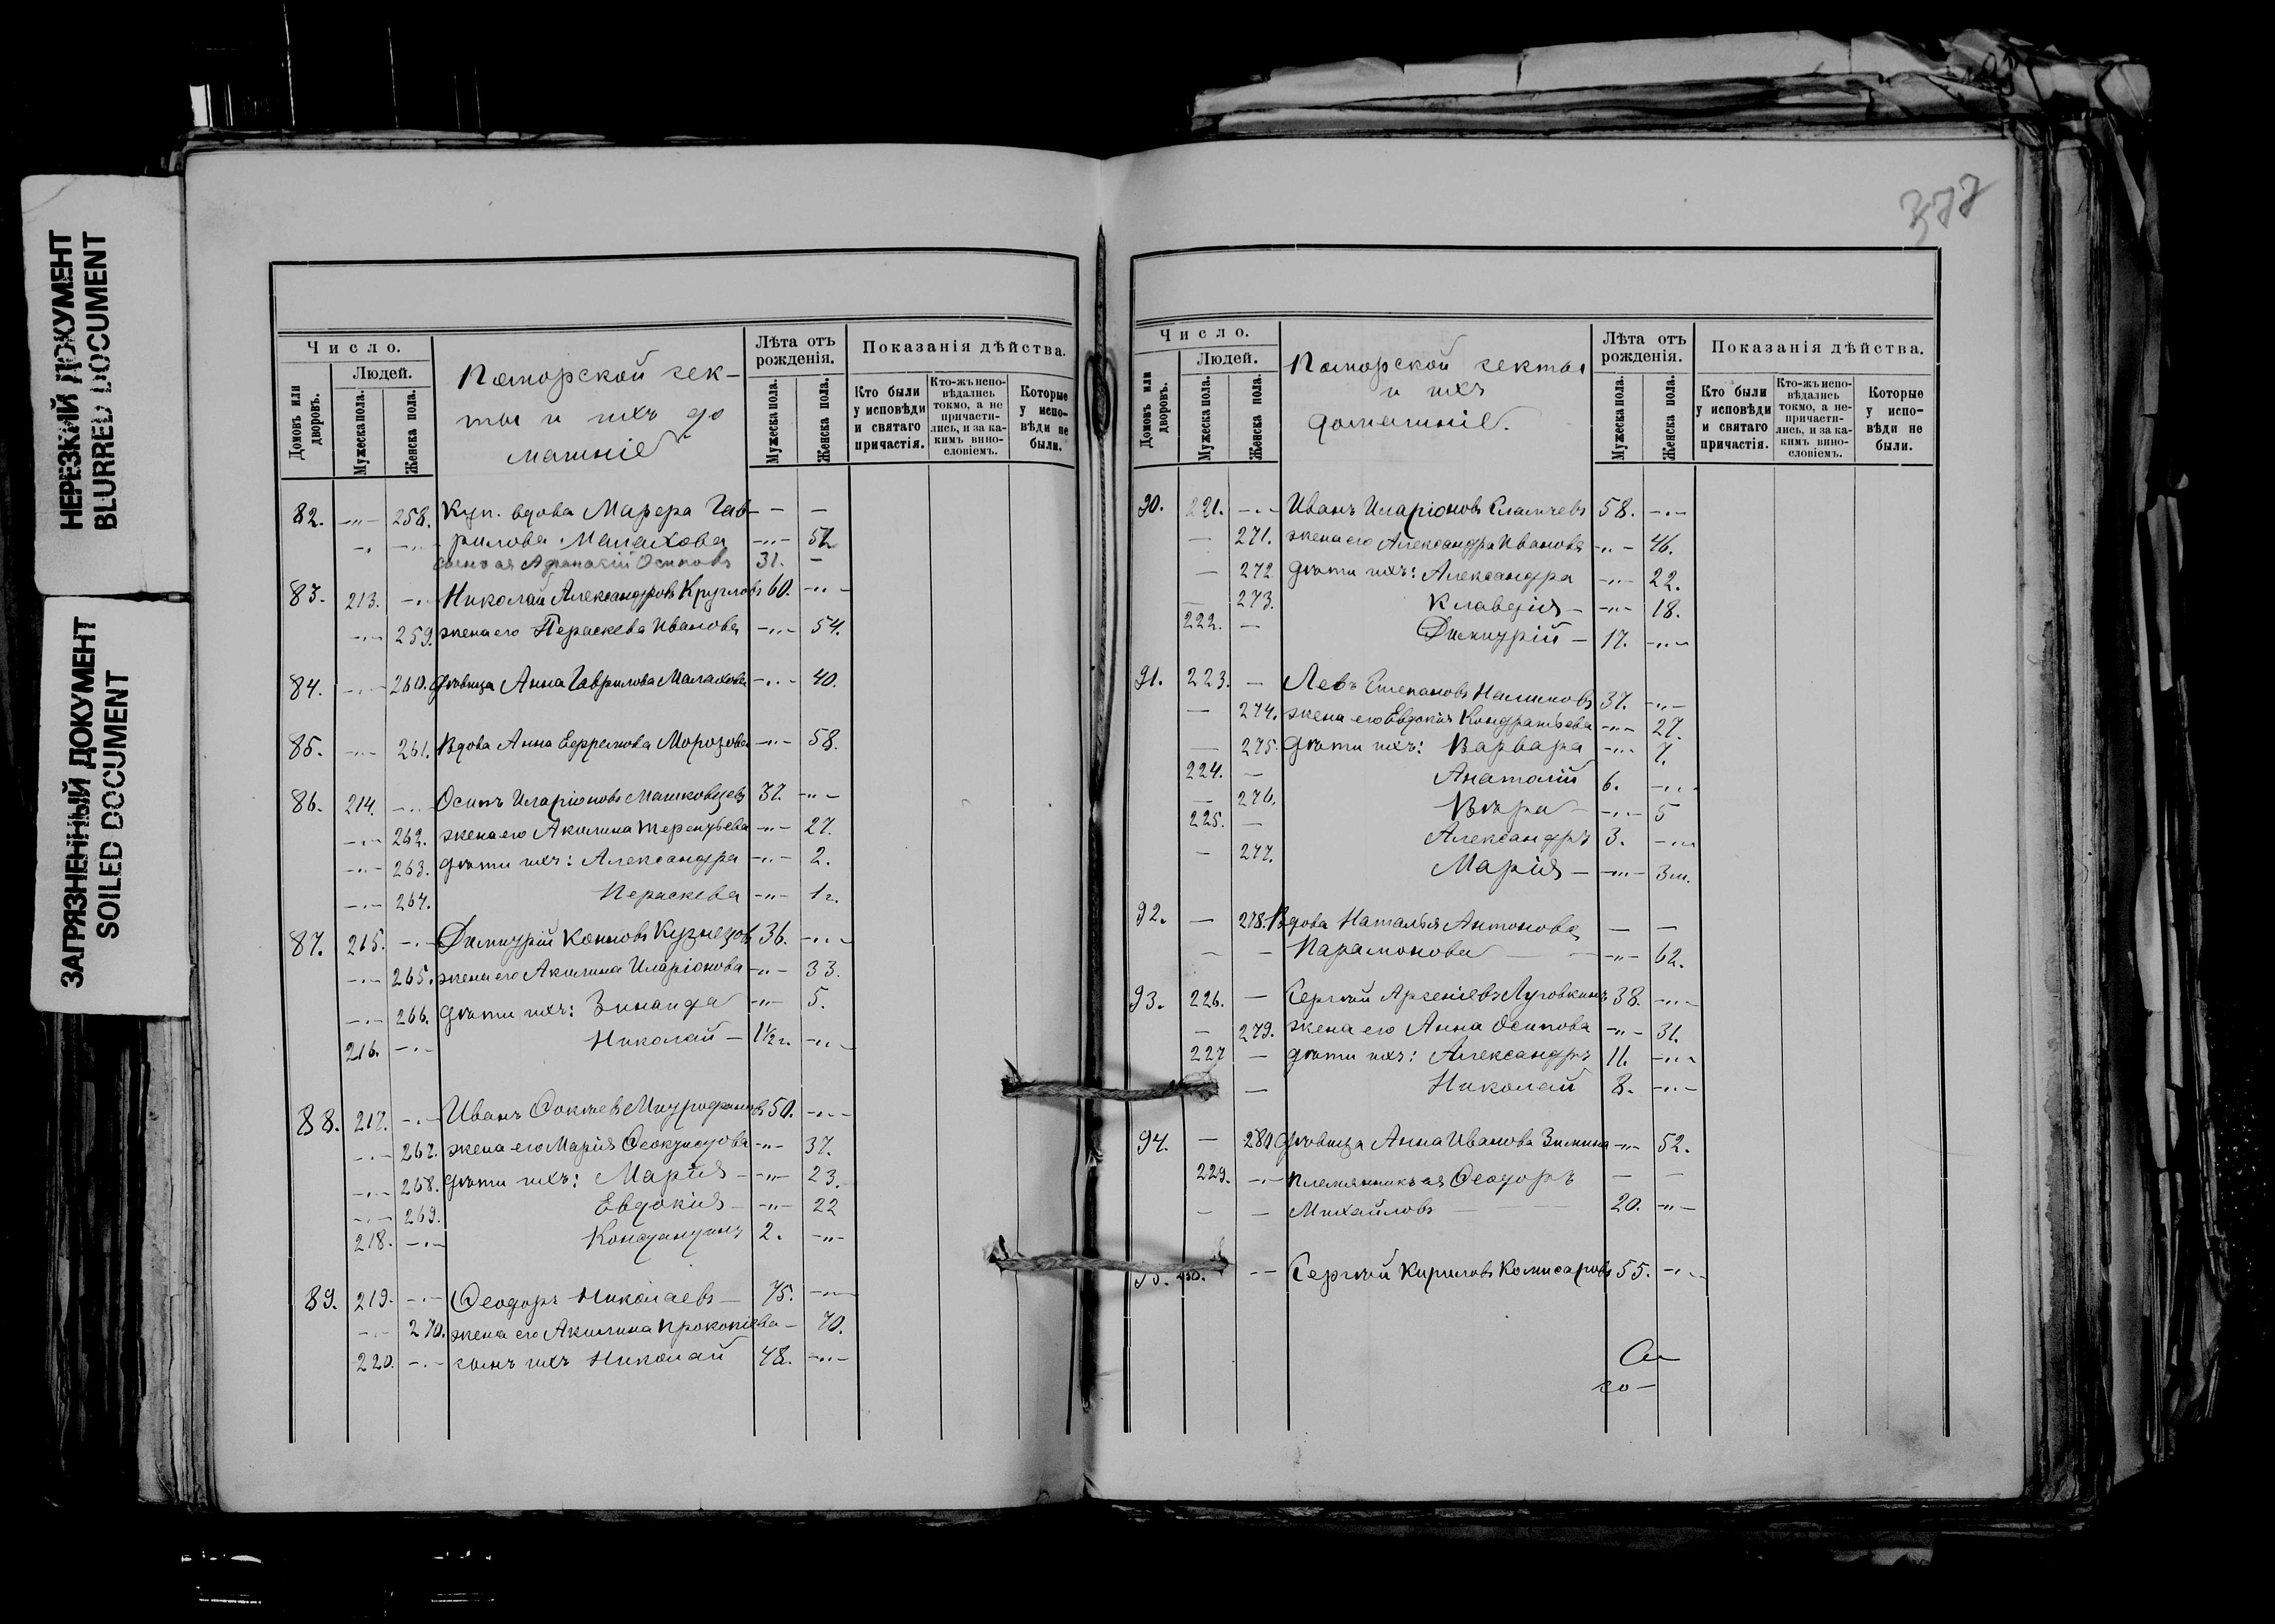 НЕРЕЗКИЙ ДОКУМЕНТ
BLURRED DOCUMENT
ЗАГРЯЗНЕННЫЙ ДОКУМЕНТ
SOILED DOCUMENT
Число.
Людей.
Домовъ или дворовъ.
Мужеска пола.
Женска пола.
Поморской сек-
ты и ихъ до
машніе
Лѣта отъ рожденія.
Мужеска пола.
Женска пола.
Показанія дѣйства.
Кто были у исповѣди и святаго причастія.
Кто-жъ исповѣдались токмо, а не причастились, и за какимъ винословіемъ.
Которые у исповѣди не были.
82. -"- 258. Куп. вдова Марфа Гав- - -
-"- -"- рилова Малахова -"- 52
сынъ ея Афанасій Осиповъ 31. -
83. 213. -"- Николай Александровъ Кругловъ 60. -"-
-"- 259. жена его Параскева Иванова -"- 54.
84. -"- 260. дѣвица Анна Гаврилова Малахова -"- 40.
85. -"- 261. Вдова Анна Ефремова Морозова -"- 58.
86. 214. -"- Осипъ Иларіоновъ Машковцевъ 32. -"-
-"- 262. жена его Акилина Терентьева -"- 27.
-"- 263. дѣти ихъ: Александра -"- 2.
-"- 264. Параскева -"- 1 г.
87. 215. -"- Димитрій Кононовъ Кузнецовъ 36. -"-
-"- 265. жена его Акилина Иларіонова -"- 33.
-"- 266. дѣти ихъ: Зинаида -"- 5.
216. -"- Николай - 1½ г. -"-
88. 217. -"- Иванъ Фокиевъ Митрофановъ 50. -"-
-"- 267. жена его Марія Ѳеоктистова -"- 37.
-"- 268. дѣти ихъ: Марія -"- 23.
-"- 269. Евдокія -"- 22
218. -"- Константинъ 2. -"-
89. 219. -"- Ѳеодоръ Николаевъ - 75. -"-
-"- 270. жена его Акилина Прокопіева - 70.
220. -"- сынъ ихъ Николай 48. -"-
377
Число.
Людей.
Домовъ или дворовъ.
Мужеска пола.
Женска пола.
Поморской секты
и ихъ
домашніе.
Лѣта отъ рожденія.
Мужеска пола.
Женска пола.
Показанія дѣйства.
Кто были у исповѣди и святаго причастія.
Кто-жъ исповѣдались токмо, а непричастились, и за какимъ винословіемъ.
Которые у исповѣди не были.
90. 221. -"- Иванъ Иларіоновъ 58. -"-
- 271. жена его Александра Иванова -"- 46.
- 272 дѣти ихъ: Александра -"- 22.
- 273. Клавдія - -"- 18.
222. - Димитрій - 17. -"-
91. 223. - Левъ Степановъ Налимовъ 37. -"-
- 274. жена его Евдокія Кондратьева -"- 27.
- 275. дѣти ихъ: Варвара -"- 7.
224. - Анатолій 6. -"-
- 276. Вѣра -"- 5
225. - Александръ 3. -"-
- 277. Марія - -"- 3 м.
92. - 278. Вдова Наталья Антонова - -
- - Парамонова -"- 62.
93. 226. - Сергѣй Арсеніевъ Луговкинъ 38. -"-
- 279. жена его Анна Осипова -"- 31.
227 - дѣти ихъ: Александръ 11. -"-
- Николай 8. -"-
94. - 280 дѣвица Анна Иванова Зимина -"- 52.
229. -"- племянникъ ея Ѳеодоръ - -
- - Михайловъ 20. -"-
95. 230. -- Сергѣй Кириловъ Комисаровъ 55. -"-